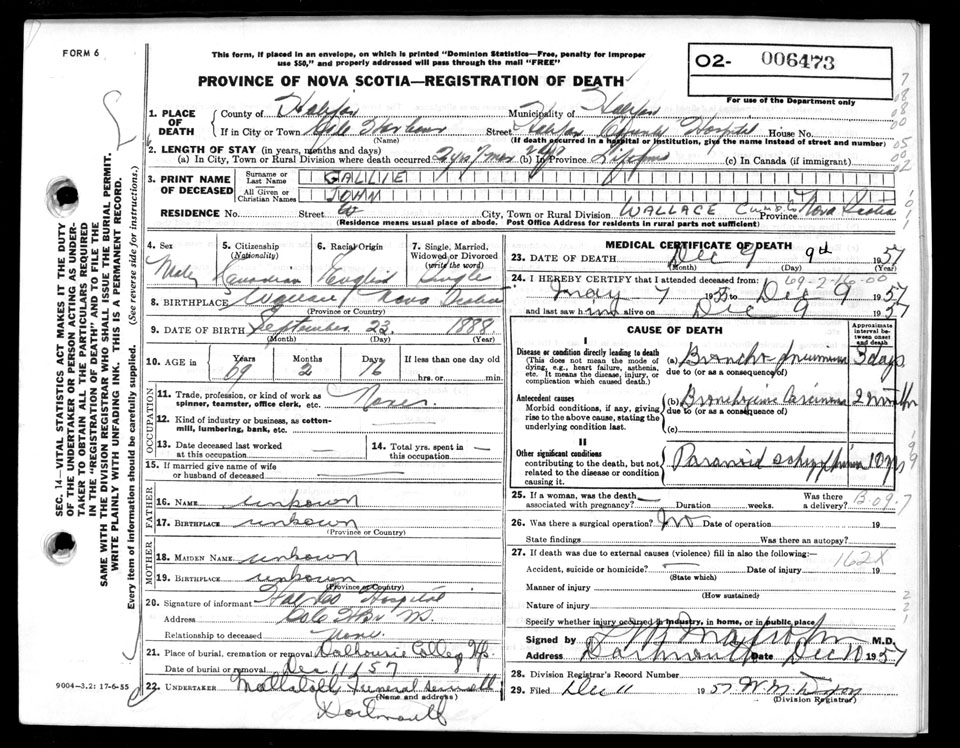 FORM 6
This form, if placed in an envelope, on which is printed "Dominion Statistics—Free, penalty for improper
use $50," and properly addressed will pass through the mail "FREE"
PROVINCE OF NOVA SCOTIA—REGISTRATION OF DEATH
O2- 006473
For use of the Department only
SEC. 14—VITAL STATISTICS ACT MAKES IT THE DUTY
OF THE UNDERTAKER OR PERSON ACTING AS UNDER-
TAKER TO OBTAIN ALL THE PARTICULARS REQUIRED
IN THE "REGISTRATION OF DEATH" AND TO FILE THE
SAME WITH THE DIVISION REGISTRAR WHO SHALL ISSUE THE BURIAL PERMIT.
WRITE PLAINLY WITH UNFADING INK. THIS IS A PERMANENT RECORD.
Every item of information should be carefully supplied. (See reverse side for instructions.)
1. PLACE OF DEATH
County of Halifax Municipality of Halifax
If in City or Town Cole Harbour Street Halifax County Hospital House No.
(Name) (If death occurred in a hospital or institution, give the name instead of street and number)
2. LENGTH OF STAY (in years, months and days)
(a) In City, Town or Rural Division where death occurred 2 yrs 7 mos (b) in Province Lifetime (c) In Canada (if immigrant)
3. PRINT NAME OF DECEASED
Surname or Last Name GALLIE
All Given or Christian Names JOHN
RESIDENCE No. Street City, Town or Rural Division WALLACE Province Nova Scotia
(Residence means usual place of abode. Post Office Address for residents in rural parts not sufficient)
4. Sex 5. Citizenship (Nationality) 6. Racial Origin 7. Single, Married, Widowed or Divorced (write the word)
Male Canadian English Single
8. BIRTHPLACE Wallace Nova Scotia
(Province or Country)
9. DATE OF BIRTH September 23 1888
(Month) (Day) (Year)
10. AGE in Years Months Days If less than one day old
69 2 16 hrs. or min.
OCCUPATION
11. Trade, profession, or kind of work as
spinner, teamster, office clerk, etc. None
12. Kind of industry or business, as cotton-
mill, lumbering, bank, etc.
13. Date deceased last worked
at this occupation
14. Total yrs. spent in
this occupation
15. If married give name of wife
or husband of deceased
FATHER
16. NAME unknown
17. BIRTHPLACE unknown
(Province or Country)
MOTHER
18. MAIDEN NAME unknown
19. BIRTHPLACE unknown
(Province or Country)
20. Signature of informant Hal Co Hospital
Address Cole Hbr
Relationship to deceased None
21. Place of burial, cremation or removal Dalhousie College Hfx.
Date of burial or removal Dec 11 1957
22. UNDERTAKER Mattatall Funeral
(Name and address)
Dartmouth
9004—3.2: 17-6-55
MEDICAL CERTIFICATE OF DEATH
23. DATE OF DEATH Dec 9 9th 1957
(Month) (Day) (Year)
69-2-16-00
24. I HEREBY CERTIFY that I attended deceased from:
May 7 1955 to Dec 9 1957
and last saw him alive on Dec 9 1957
CAUSE OF DEATH
Approximate interval between onset and death
I
Disease or condition directly leading to death
(This does not mean the mode of
dying, e.g., heart failure, asthenia,
etc. It means the disease, injury, or
complication which caused death.)
(a) Broncho pneumonia 3 days
due to (or as a consequence of)
Antecedent causes
Morbid conditions, if any, giving
rise to the above cause, stating the
underlying condition last.
(b) Bronchogenic Carcinoma 2 months
due to (or as a consequence of)
(c)
II
Other significant conditions
contributing to the death, but not
related to the disease or condition
causing it.
Paranoid schizophrenia 10 yrs
25. If a woman, was the death
associated with pregnancy? Duration weeks. Was there a delivery?
B-09-7
26. Was there a surgical operation? No Date of operation 19
State findings Was there an autopsy?
27. If death was due to external causes (violence) fill in also the following:—
162X
Accident, suicide or homicide? Date of injury 19
(State which)
Manner of injury
(How sustained)
Nature of injury
Specify whether injury occurred in industry, in home, or in public place
Signed by M.D.
Address Dartmouth Date Dec 10 1957
28. Division Registrar's Record Number
29. Filed Dec 11 1957
(Division Registrar)